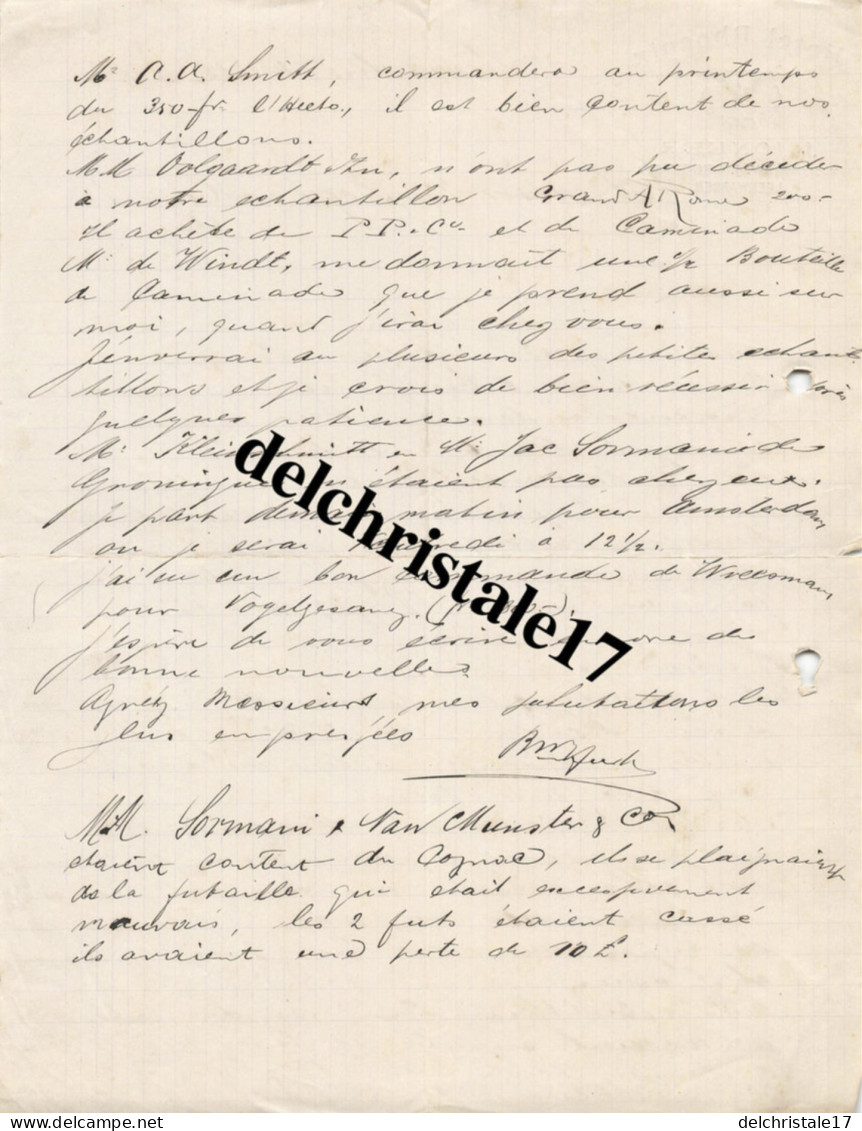 Mr A. A. Smitt, commandera au printemps
du 350 fr. l'Hecto., il est bien content de nos
échantillons.
MM Volgaardt Zn, n'ont pas pu décider
a notre echantillon Grand A Rome 200.-
Il achête de P.P. & Co. et de Caminade
Mr de Windt, me donnait une 1/2 Bouteille
de Caminade que je prend aussi sur
moi, quand j'irai chez vous.
J'enverrai au plusieurs des petites echan-
tillons et je crois de bien réussir après
quelques patience.
Mr Kleinschmitt en Mr Jac Sormanie de
Groningue n'étaient pas chez eux.
Je part demain matin pour Amsterdam
ou je serai à 12 1/2.
j'ai eu un bon commande de Vreesman
pour Vogelzesang.
j'espère de vous écrire encore de
bonne nouvelles
Agréez Messieurs mes salutations les
plus empressées
MM. Sormani & Van Munster & Co.
etaient content du Cognac, ils se plaignaient
de la futaille qui était excessivement
mauvais, les 2 futs étaient cassé
ils avaient une perte de 10 £.
delchristale17
Delcampe.net
delchristale17